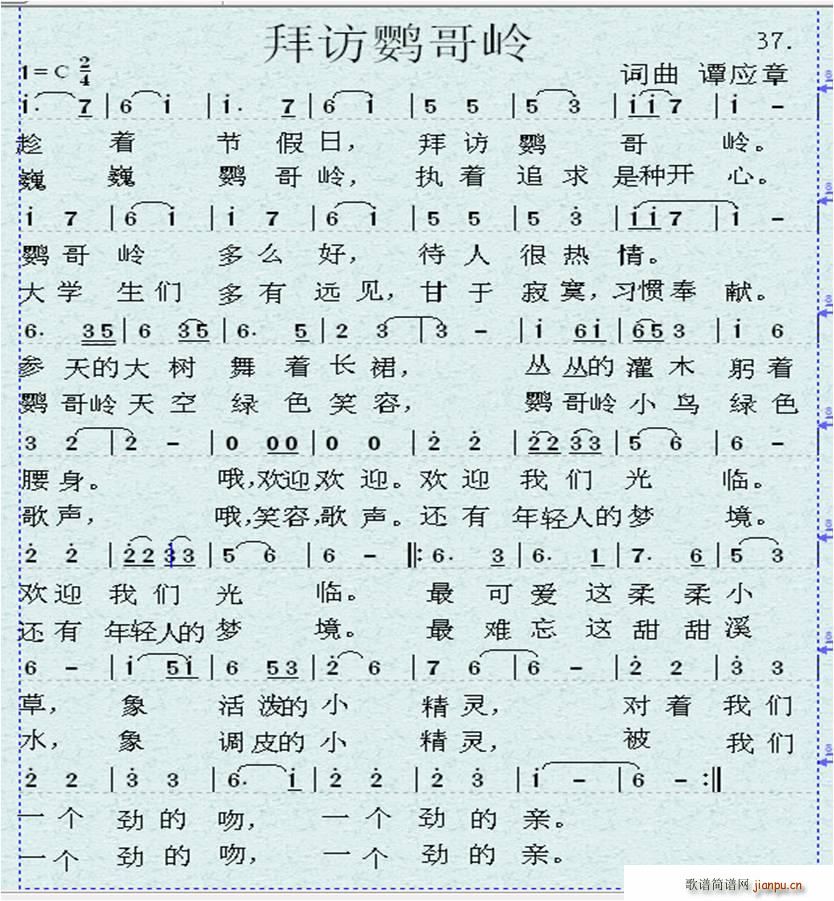 拜访鹦哥岭
37.
1=C 2/4
词曲 谭应章
i. 7 | 6 i | i. 7 | 6 i | 5 5 | 5 3 | i i 7 | i - |
趁 着 节 假 日, 拜 访 鹦 哥 岭。
巍 巍 鹦 哥 岭, 执 着 追 求 是种开 心。
i 7 | 6 i | i 7 | 6 i | 5 5 | 5 3̇ | i i 7 | i - |
鹦 哥 岭 多 么 好, 待 人 很 热 情。
大 学 生 们 多 有 远 见, 甘 于 寂 寞, 习惯奉 献。
6. 35 | 6 35 | 6. 5 | 2 3 | 3 - | i 6i | 65 3 | i 6
参 天的大 树 舞 着 长 裙, 丛 丛的 灌 木 躬着
鹦 哥岭 天 空 绿 色 笑 容, 鹦 哥岭 小 鸟 绿色
3 2 | 2 - | 0 00 | 0 0 | 2̇ 2̇ | 2̇2̇ 3̇3̇ | 5 6 | 6 - |
腰 身。 哦,欢迎,欢 迎。欢 迎 我 们 光 临。
歌 声, 哦,笑容,歌 声。还 有 年轻人的 梦 境。
2̇ 2̇ | 2̇2̇ 3̇3̇ | 5 6 | 6 - ‖: 6. 3 | 6. 1 | 7. 6 | 5 3
欢 迎 我 们 光 临。 最 可 爱 这 柔 柔 小
还 有 年轻人的 梦 境。 最 难 忘 这 甜 甜 溪
6 - | i 5i | 6 53 | 2̇ 6 | 7 6 | 6 - | 2̇ 2 | 3̇ 3
草, 象 活 泼的 小 精 灵, 对 着 我 们
水, 象 调 皮的 小 精 灵, 被 我 们
2̇ 2 | 3̇ 3 | 6. i | 2̇ 2̇ | 2̇ 3̇ | i - | 6 - :‖
一 个 劲 的 吻, 一 个 劲 的 亲。
一 个 劲 的 吻, 一 个 劲 的 亲。
歌谱简谱网 jianpu.cn